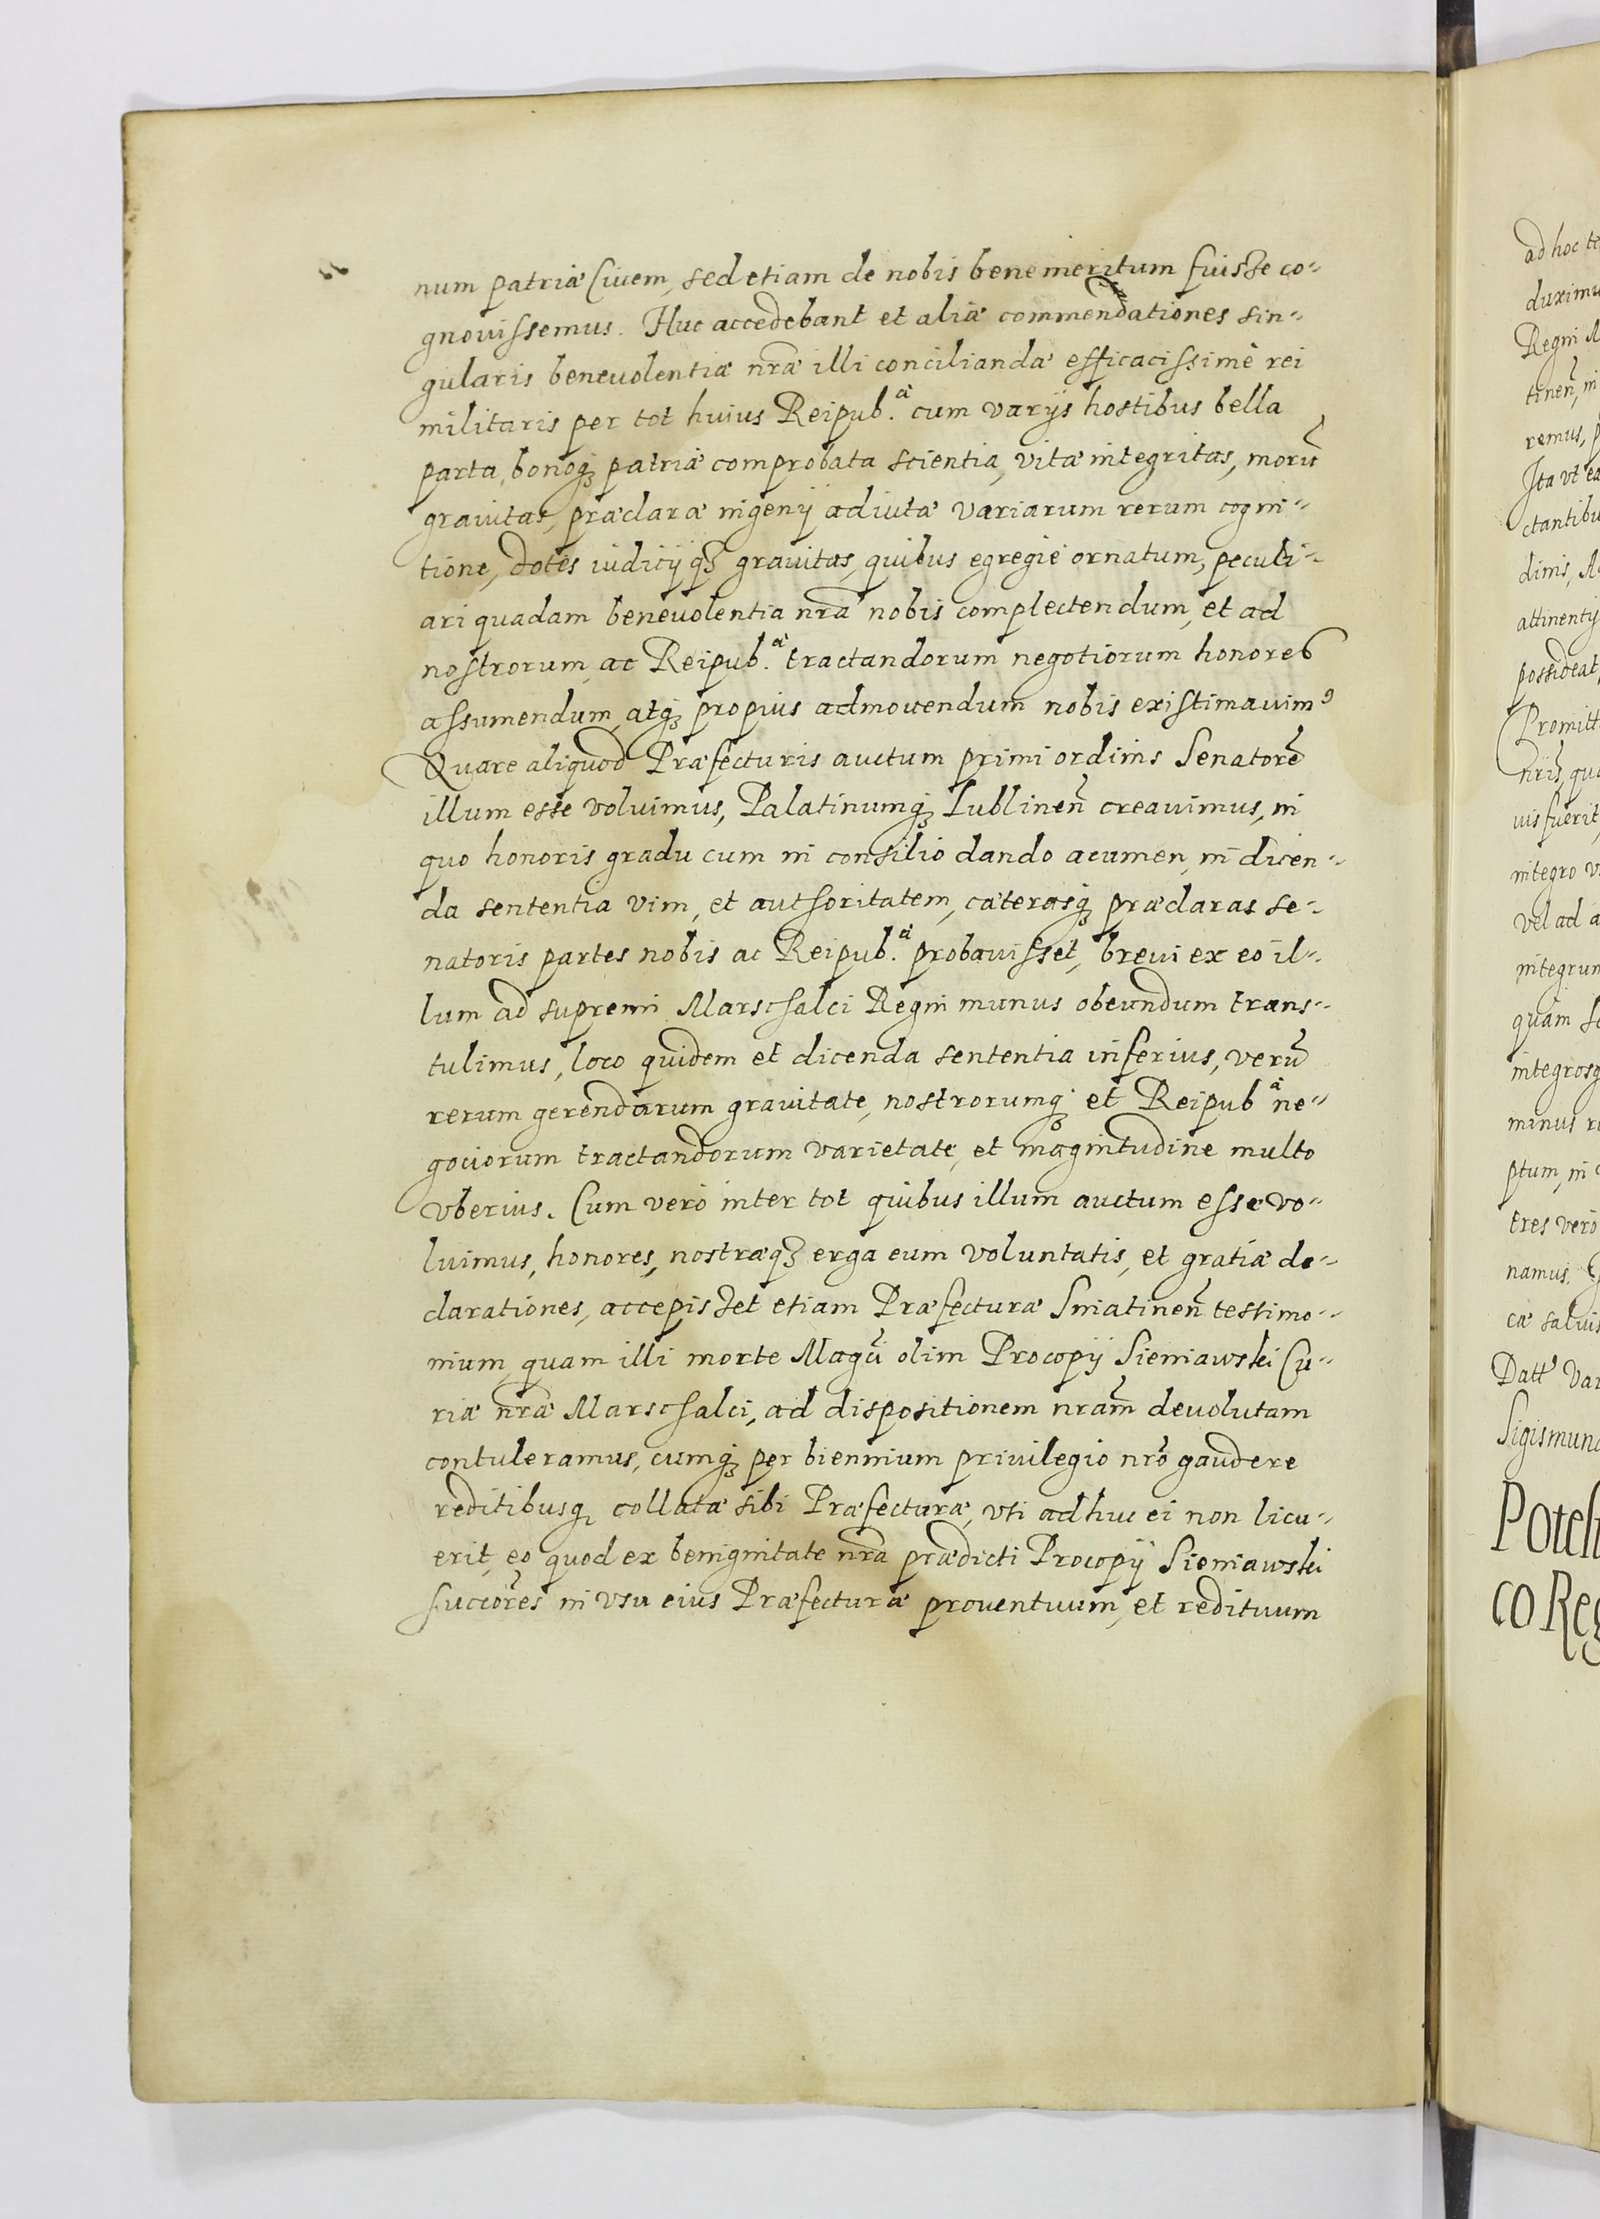 num patriæ Civem, sed etiam de nobis bene meritum fuisse co-
gnovissemus. Huc accedebant et aliæ commendationes sin-
gularis benevolentiæ nr̃æ illi conciliandæ efficacissimè rei
militaris per tot huius Reipub.ᵃᵉ cum varijs hostibus bella
parta, bonoq̃ʒ patriæ comprobata scientia, vitæ integritas, morũ
gravitas, præclaræ ingenij adiutæ variarum rerum cogni-
tione, dotes iudicijqʒ gravitas, quibus egregiè ornatum, peculi-
ari quadam benevolentia nr̃a nobis complectendum, et ad
nostrorum, ac Reipub.ᵃᵉ tractandorum negotiorum honores
assumendum, atqʒ propius admovendum nobis existimavim⁹
Quare aliquod Præfecturis auctum primi ordinis Senatorẽ
illum esse voluimus, Palatinumqʒ Lublineñ creavimus, in
quo honoris gradu cum in consilio dando acumen, in dicen-
da sententia vim, et authoritatem, cæterasqʒ præclaras se-
natoris partes nobis ac Reipub.ᵃᵉ probavisset, brevi ex eo il-
lum ad supremi Marschalci Regni munus obeundum trans-
tulimus, loco quidem et dicenda sententia inferius, verũ
rerum gerendarum gravitate, nostrorumqʒ et Reipubᵃᵉ ne-
gociorum tractandorum varietate, et magnitudine multo
vberius. Cum verò inter tot quibus illum auctum esse vo-
luimus, honores, nostræqʒ erga eum voluntatis, et gratiæ de-
clarationes, accepisset etiam Præfecturæ Sniatineñ testimo-
nium, quam illi morte Magc̃i olim Procopij Sieniawski Cu-
riæ nr̃æ Marschalci, ad dispositionem nr̃am devolutam
contuleramus, cumqʒ per biennium privilegio nr̃o gaudere
reditibusqʒ collatæ sibi Præfecturæ, vti adhuc ei non licu-
erit, eo quod ex benignitate nr̃a prædicti Procopij Sieniawski
succõres in vsu eius Præfecturæ proventuum, et redituum
ad hoc te
duximu
Regni M
tineñ, in
remus, p
Ita vt ea
ctantibu
dinis, A
attinentij
possideat
Promitt
nr̃is, qu
uis fuerit
integro v
vel ad a
integrum
quam s
integrosq
minus r
ptum, in
tres verò
namus.
cæ salvis
Datt̃ Var
Sigismun
Potest
co Reg